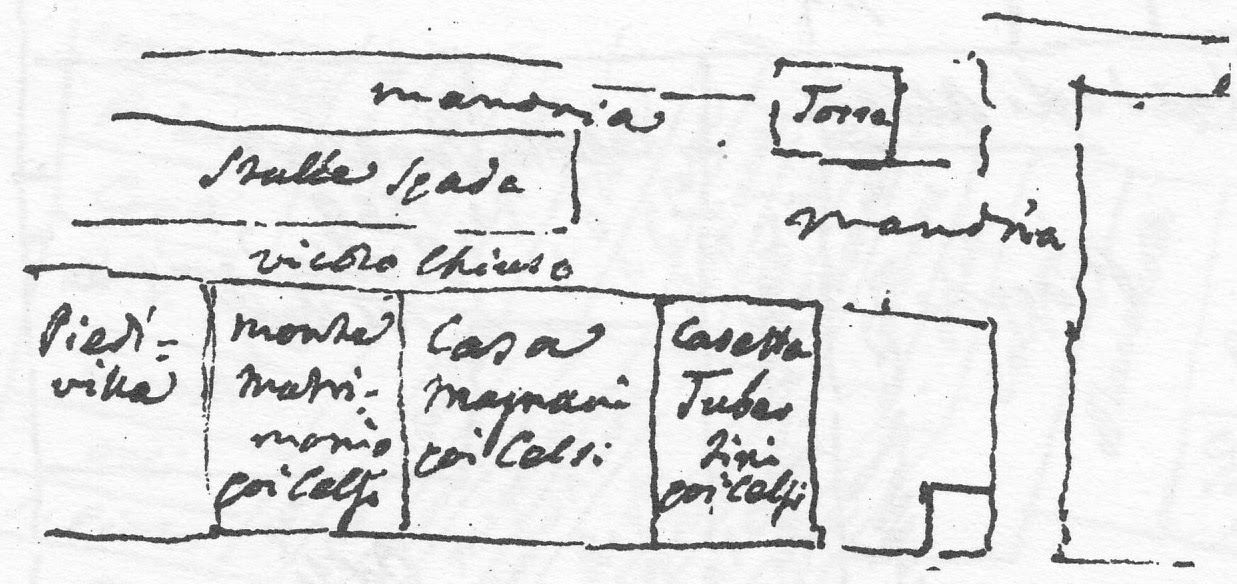 mandria
Torre
Stalle Spada
mandria
vicolo Chiuso
Piedi-
villa
monte
matri-
monio
poi Celsi
Casa
Magnani
poi Celsi
Casetta
Tuber
tini
poi Celsi